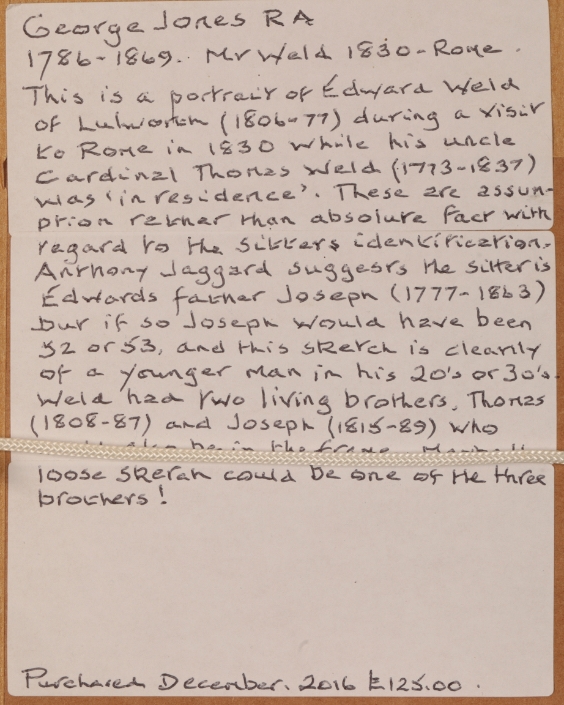 George Jones RA
1786-1869. Mr Weld 1830-Rome.
This is a portrait of Edward Weld
of Lulworth (1806-77) during a visit
to Rome in 1830 while his uncle
Cardinal Thomas Weld (1773-1837)
was 'in residence'. These are assum-
ption rather than absolute fact with
regard to the sitters identification.
Anthony Jaggard suggests the sitter is
Edwards father Joseph (1777-1863)
but if so Joseph would have been
52 or 53, and this sketch is clearly
of a younger man in his 20's or 30's.
Weld had two living brothers, Thomas
(1808-87) and Joseph (1815-89) who
also be in the frame.
loose sketch could be one of the three
brothers!
Purchased December. 2016 £125.00.